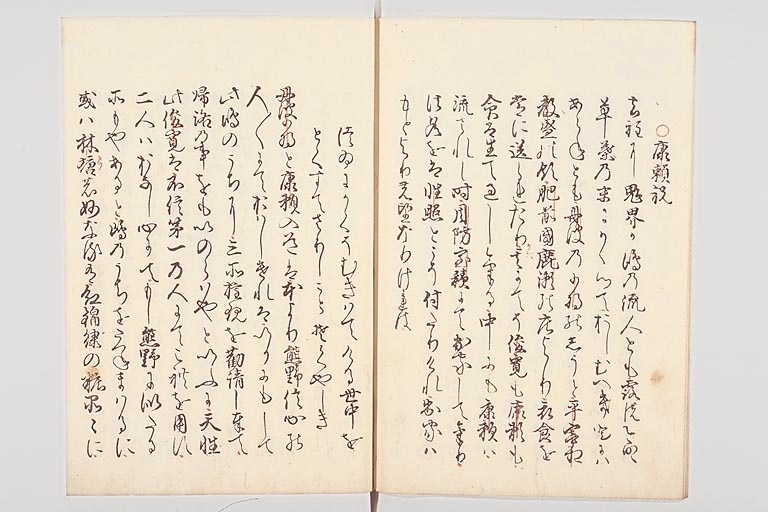 ○康頼祝
さる程に鬼界か嶋の流人とも露の命
草葉の末にかゝつておしむへきには
あらねとも丹波の少将のしうと平宰相
教盛の領肥前國鹿瀬の庄より衣食を
常に送られたりそれにてそ俊寛も康頼も
命を生て過しける中にも康頼は
流されし時周防室積にて出家して
法名をは性照とこそ付たりけれ出家は
もとよりの望なりけれは
つゐにかくそむきはてける世中を
とくすてさりしことそくやしき
丹波少将と康頼入道はもとより熊野信心の
人〱にておはしけれはいかにもして
此嶋のうちに三所権現を勧請し奉て
帰洛の事をもいのらはやといふに天性
此俊寛は不信第一の人にてこれを用す
二人はおなし心にてもし熊野に似たる
所もやあると嶋のうちを尋まはるに
或は林塘の妙なる有紅錦繍の粧品〻に